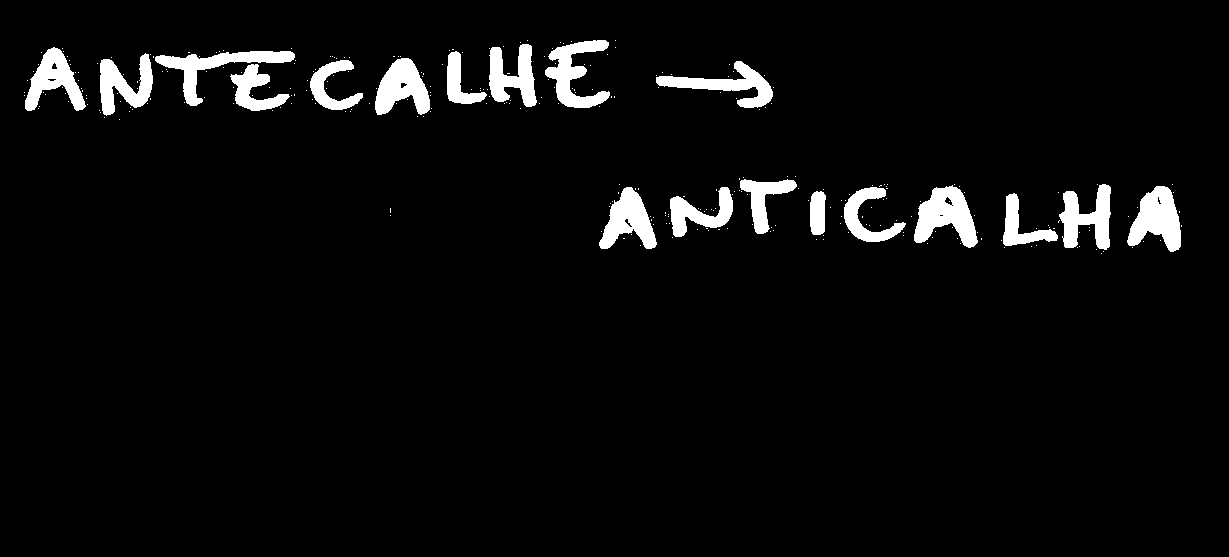 ANTECALHE →
ANTICALHA